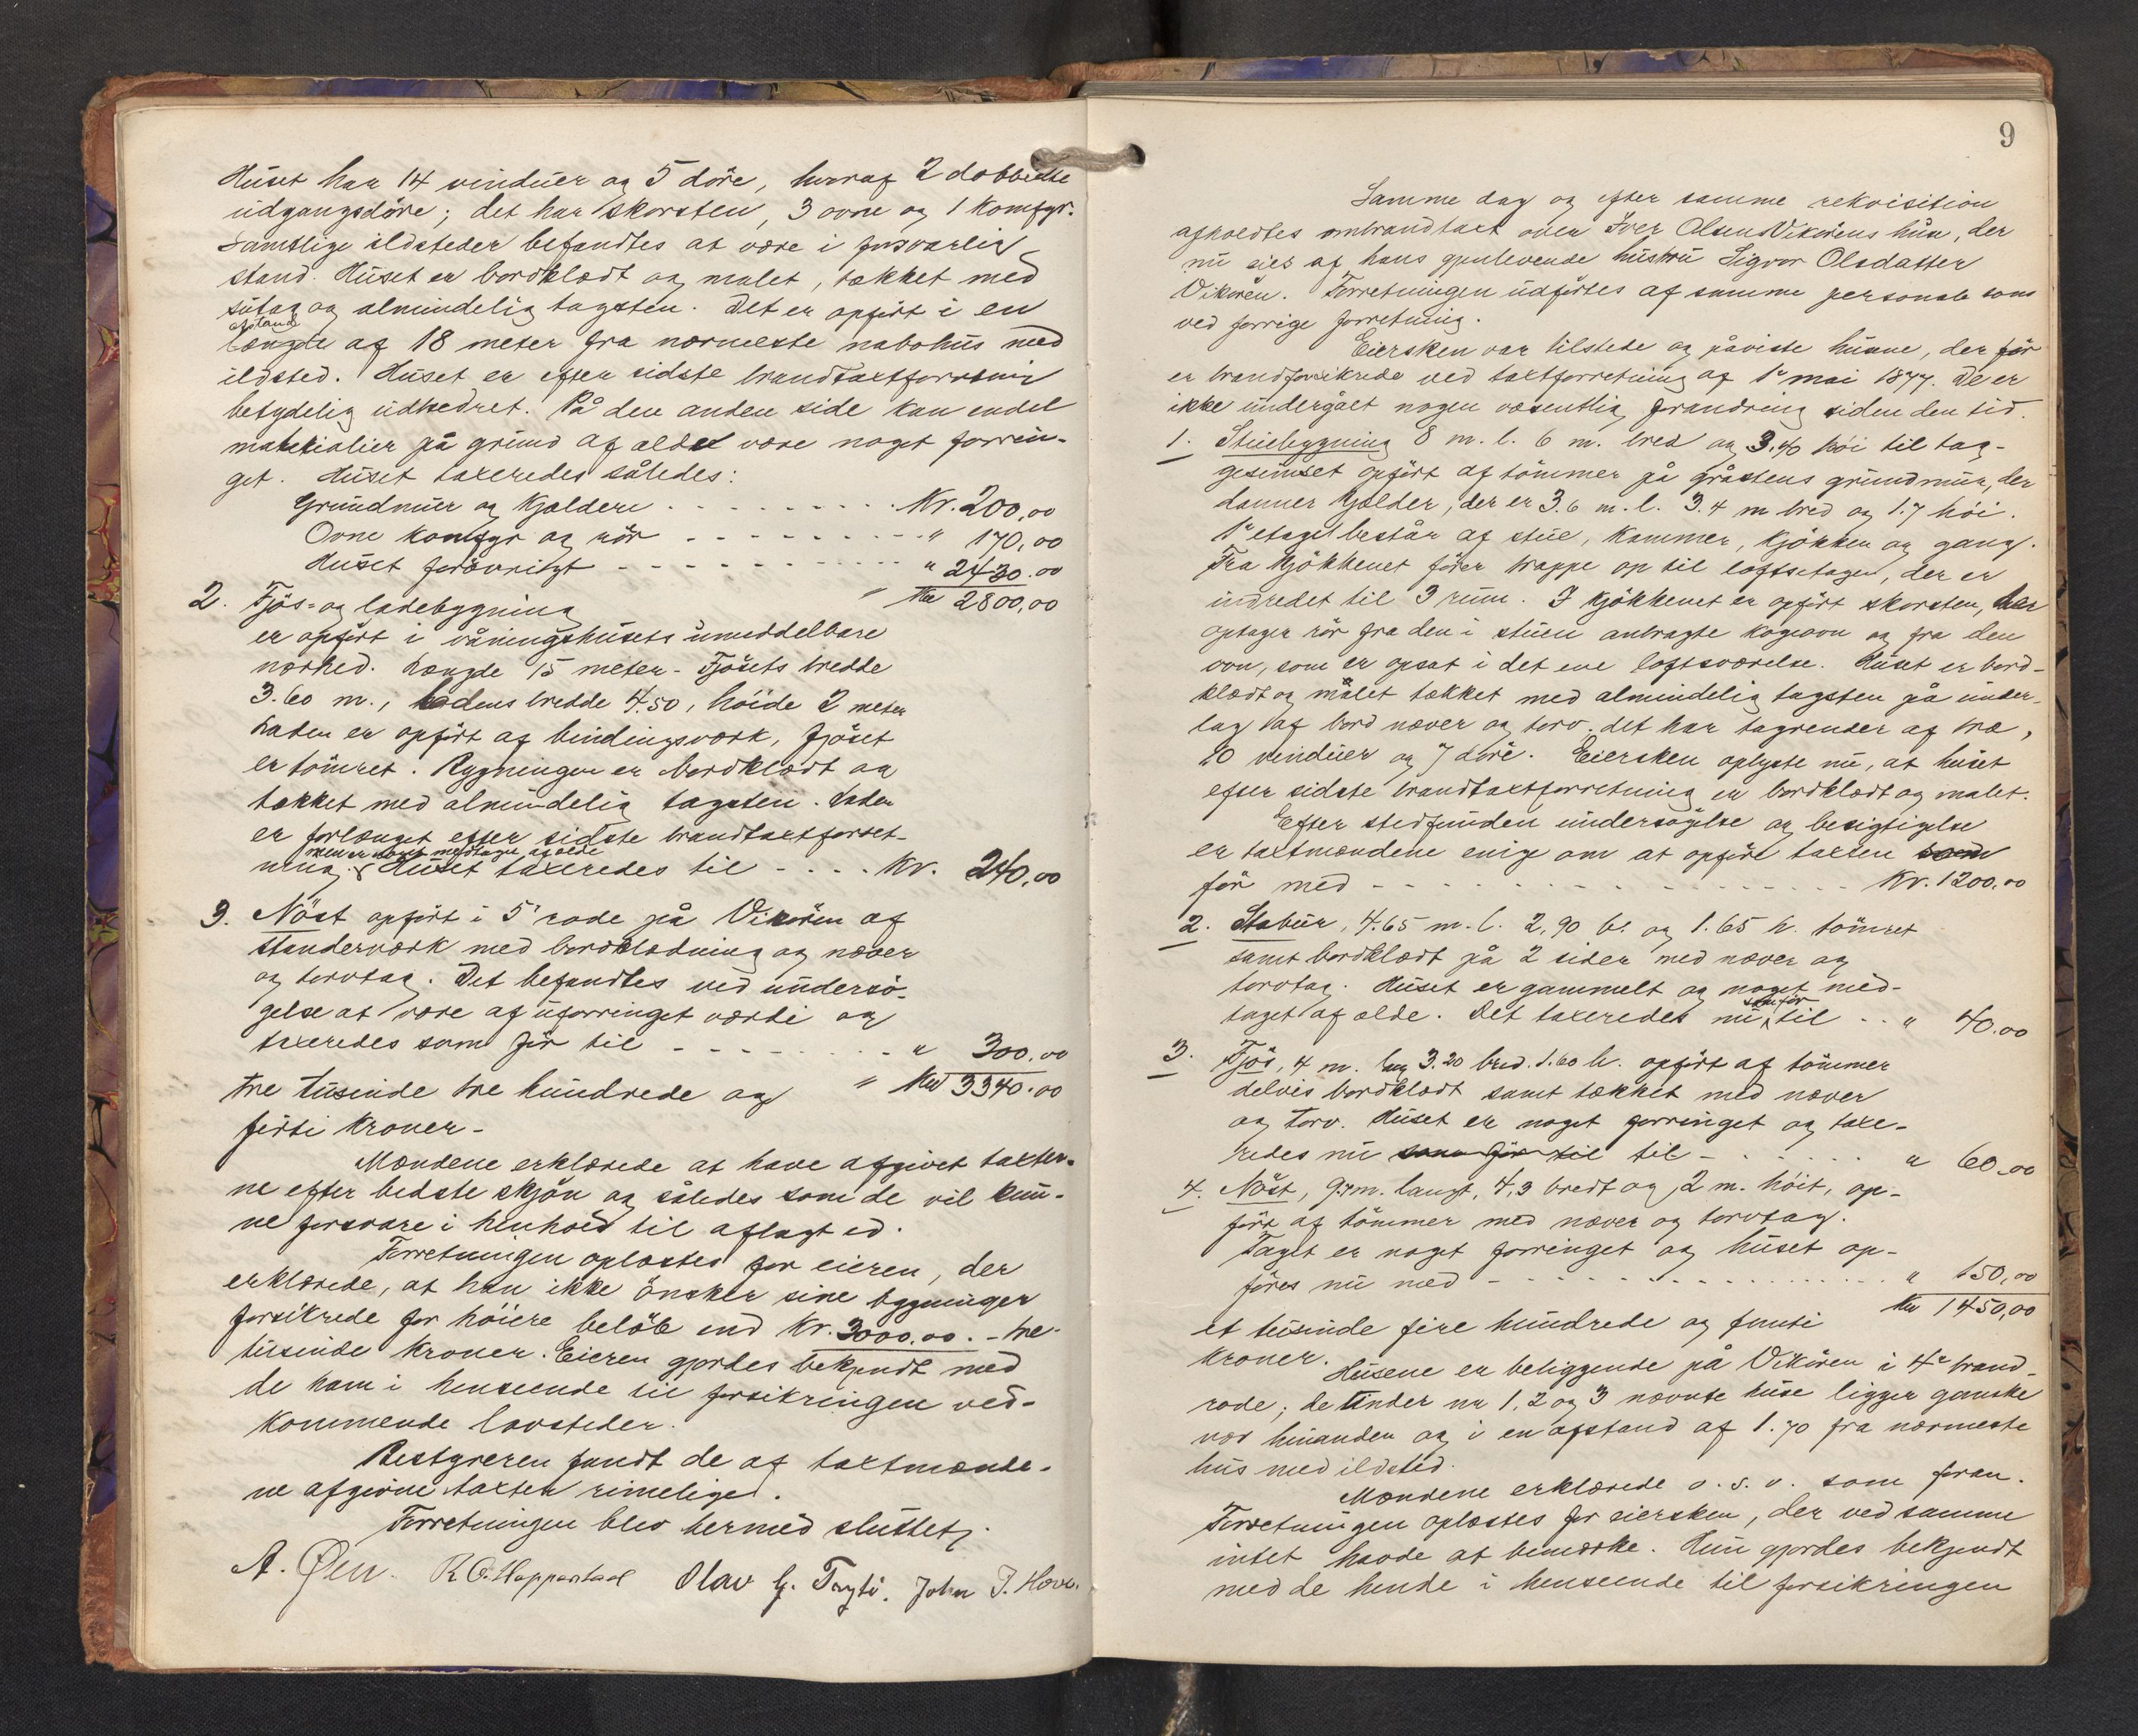 Huset har 14 vinduer og 5 döre, hvoraf 2 dobbelte
udgangsdöre; det har skorsten, 3 ovne og 1 komfyr.
Samtlige ildsteder befandtes at være i forsvarlig
stand. Huset er bordklædt og malet, tækket med
sutag og almindelig tagsten. Det er opfört i en
afstand
længde af 18 meter fra nærmeste nabohus med
ildsted. Huset er efter sidste brandtaxtforretning
betydelig udbedret. På den anden side kan endel
materialier på grund af alder være noget forrin-
get. Huset taxeredes således:
Grundmur og kjældere . . . . . . . . Kr. 200,00
Ovne komfyr og rör - - - - - - - - " 170,00
Huset forövrigt - - - - - - - - " 2430.00
" Kr 2800,00
2. Fjös- og ladebygning
er opfört i våningshusets umiddelbare
nærhed. Længde 15 meter - Fjösets bredde
3.60 m., ladens bredde 4.50, höide 2 meter
Laden er opfört af bindingsværk, fjöset
er tömret. Bygningen er bordklædt og
tækket med almindelig tagsten. Laden
er forlænget efter sidste brandtaxtforret-
men er noget medtagen af ælde
ning. Huset taxeredes til - . . . Kr. 240,00
3. Nöst opfört i 5' rode på Vikören af
stenderværk med bordklædning og næver
og torvtag. Det befandtes ved undersö-
gelse at være af uforringet værdi og
taxeredes som för til - - - - - - " 300.00
" Kr 3340.00
tre tusinde tre hundrede og
förti kroner -
Mændene erklærede at have afgivet taxter-
ne efter bedste skjön og således som de vil kun-
ne forsvare i henhold til aflagt ed.
Forretningen oplæstes for eieren, der
erklærede, at han ikke önsker sine bygninger
forsikrede for höiere belöb end Kr. 3000.00. - tre-
tusinde kroner. Eieren gjordes bekjendt med
de ham i henseende til forsikringen ved-
kommende lovsteder.
Bestyreren fandt de af taxtmænde-
ne afgivne taxter rimelige.
Forretningen blev hermed sluttet.
A. Øen. Olav G. John J. Hove.
9
Samme dag og efter samme rekvisition
afholdtes ombrandtaxt over Iver Olsens Vikörens hus, der
nu eies af hans gjenlevende hustru Sigvor Olsdatter
Vikören. Forretningen udförtes af samme personale som
ved forrige forretning.
Eiersken var tilstede og påviste husene, der för
er brandforsikrede ved taxtforretning af 1' mai 1877. De er
ikke undergået nogen væsentlig forandring siden den tid.
1. Stuebygning 8 m. l. 6 m. bred og 3.40 höi til tag-
gesimset opfört af tömmer på gråstens grundmur, der
danner kjælder, der er 3.6 m. l. 3.4 m bred og 1.7 höi.
1' etage består af stue, kammer, kjökken og gang.
Fra kjökkenet förer trappe op til loftsetagen, der er
indredet til 3 rum. I kjökkenet er opfört skorsten, der
optager rör fra den i stuen anbragte kogeovn og fra den
ovn, som er opsat i det ene loftsværelse. Huset er bord-
klædt og målet tækket med almindelig tagsten på under-
lag af bord næver og torv. det har tagrender af træ,
10 vinduer og 7 döre. Eiersken oplyste nu, at huset
efter sidste brandtaxtforretning er bordklædt og malet.
Efter stedfunden undersögelse og besigtigelse
er taxtmændene enige om at opföre taxten som
för med - - - - - - - - - - Kr. 1200,00
2. Stabur, 4.65 m. l. 2,90 b. og 1.65 h. tömret
samt bordklædt på 2 sider med næver og
torvtag. Huset er gammelt og noget med-
som för
taget af ælde. Det taxeredes nu til . . " 40.00
3. Fjös, 4 m. lang 3.20 bred. 1.60 h. opfört af tömmer
delvis bordklædt samt tækket med næver
og torv. Huset er noget forringet og taxe-
redes nu som för til til - . . . . . " 60.00
4. Nöst, 9.7 m. langt, 4,3 bredt og 2 m. höit, op-
fört af tömmer med næver og torvtag.
Taget er noget forringet og huset op-
föres nu med - - - - - - - - " 150,00
Kr 1450,00
et tusinde fire hundrede og femti
kroner.
Husene er beliggende på Vikören i 4' brand-
rode; de under no 1, 2 og 3 nævnte huse ligger ganske
nær hinanden og i en afstand af 1.70 fra nærmeste
hus med ildsted.
Mændene erklærede o. s. v. som foran.
Forretningen oplæstes for eiersken, der ved samme
intet havde at bemærke. Hun gjordes bekjendt
med de hende i henseende til forsikringen